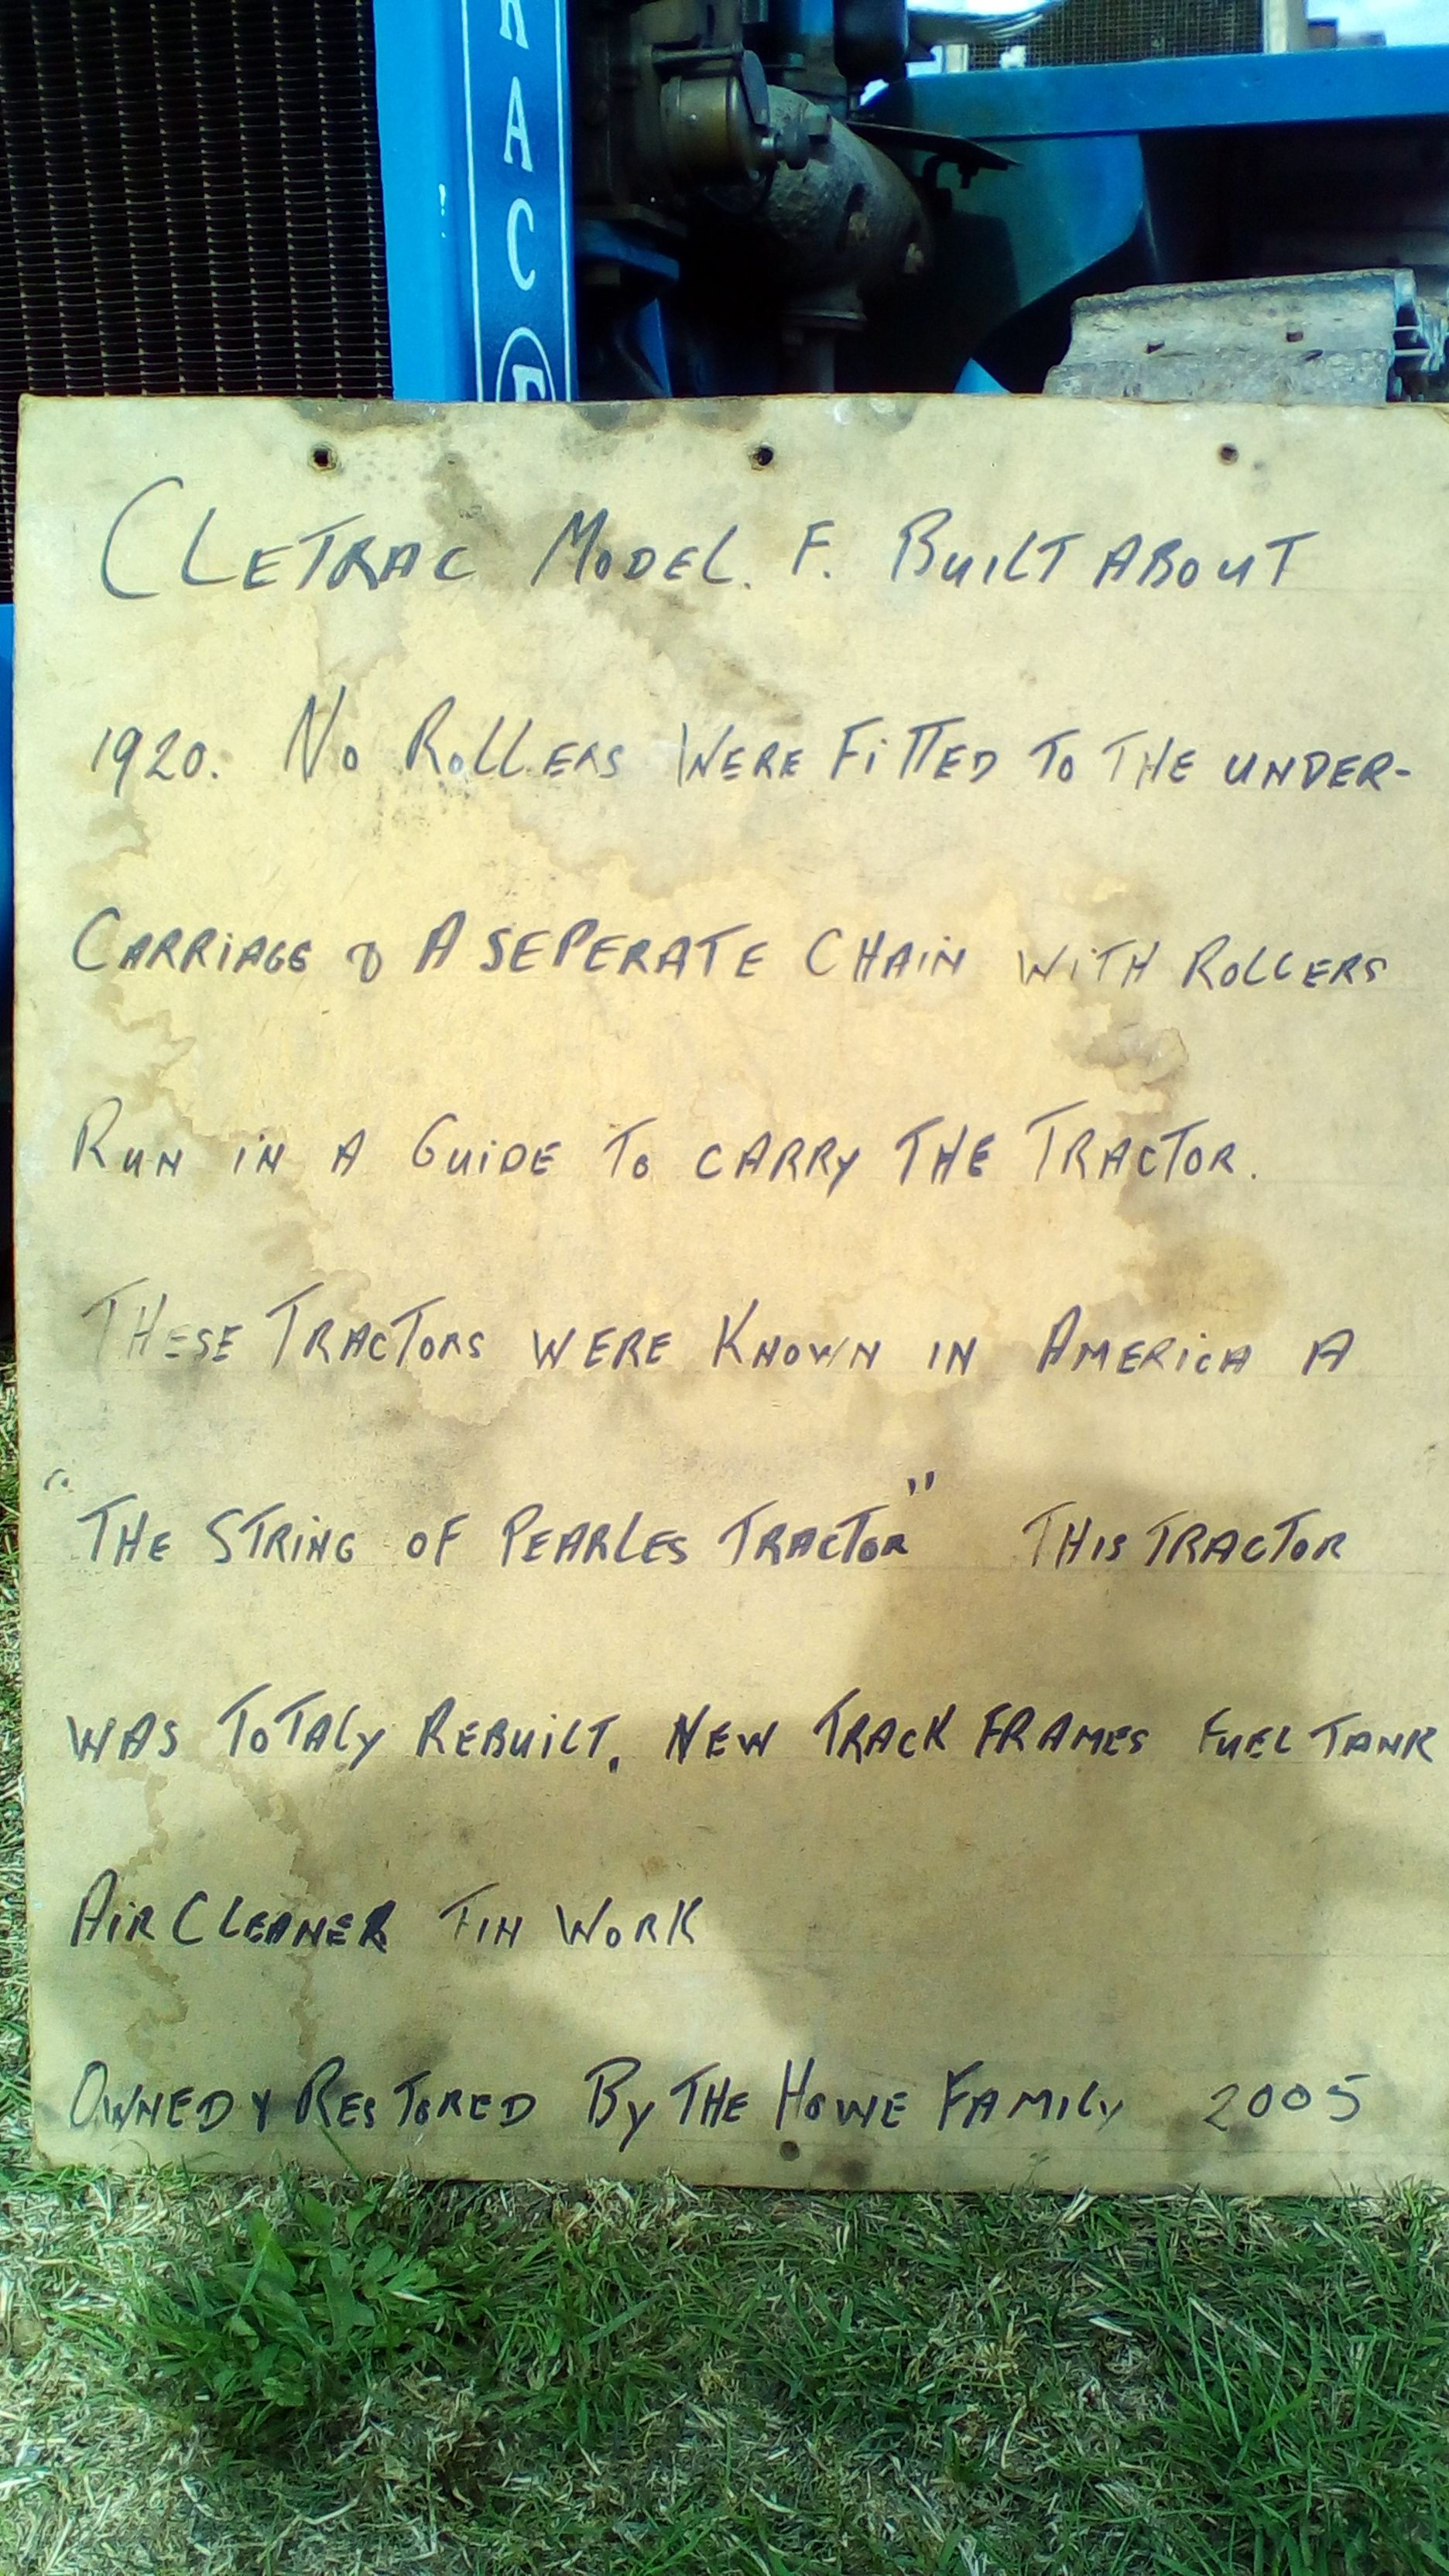 RAC F
CLETRAC MODEL. F. BUILT ABOUT
1920. NO ROLLERS WERE FITTED TO THE UNDER-
CARRIAGE & A SEPERATE CHAIN WITH ROLLERS
RUN IN A GUIDE TO CARRY THE TRACTOR.
THESE TRACTORS WERE KNOWN IN AMERICA A
"THE STRING OF PEARLES TRACTOR" THIS TRACTOR
WAS TOTALY REBUILT. NEW TRACK FRAMES FUEL TANK
AIR CLEANER TIN WORK
OWNED & RESTORED BY THE HOWE FAMILY 2005